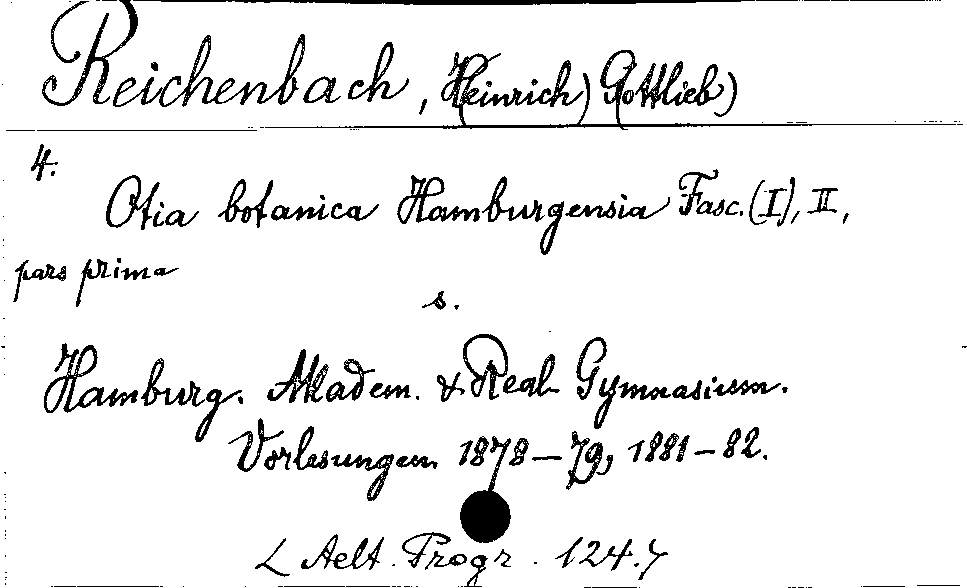 Reichenbach, H(einrich) G(ottlieb)
4.
Otia botanica Hamburgensia Fasc. (I), II,
pars prima
s.
Hamburg. Akadem. & Real Gymnasium.
Vorlesungen 1878–79, 1881–82.
L Aelt. Progr. 124.7